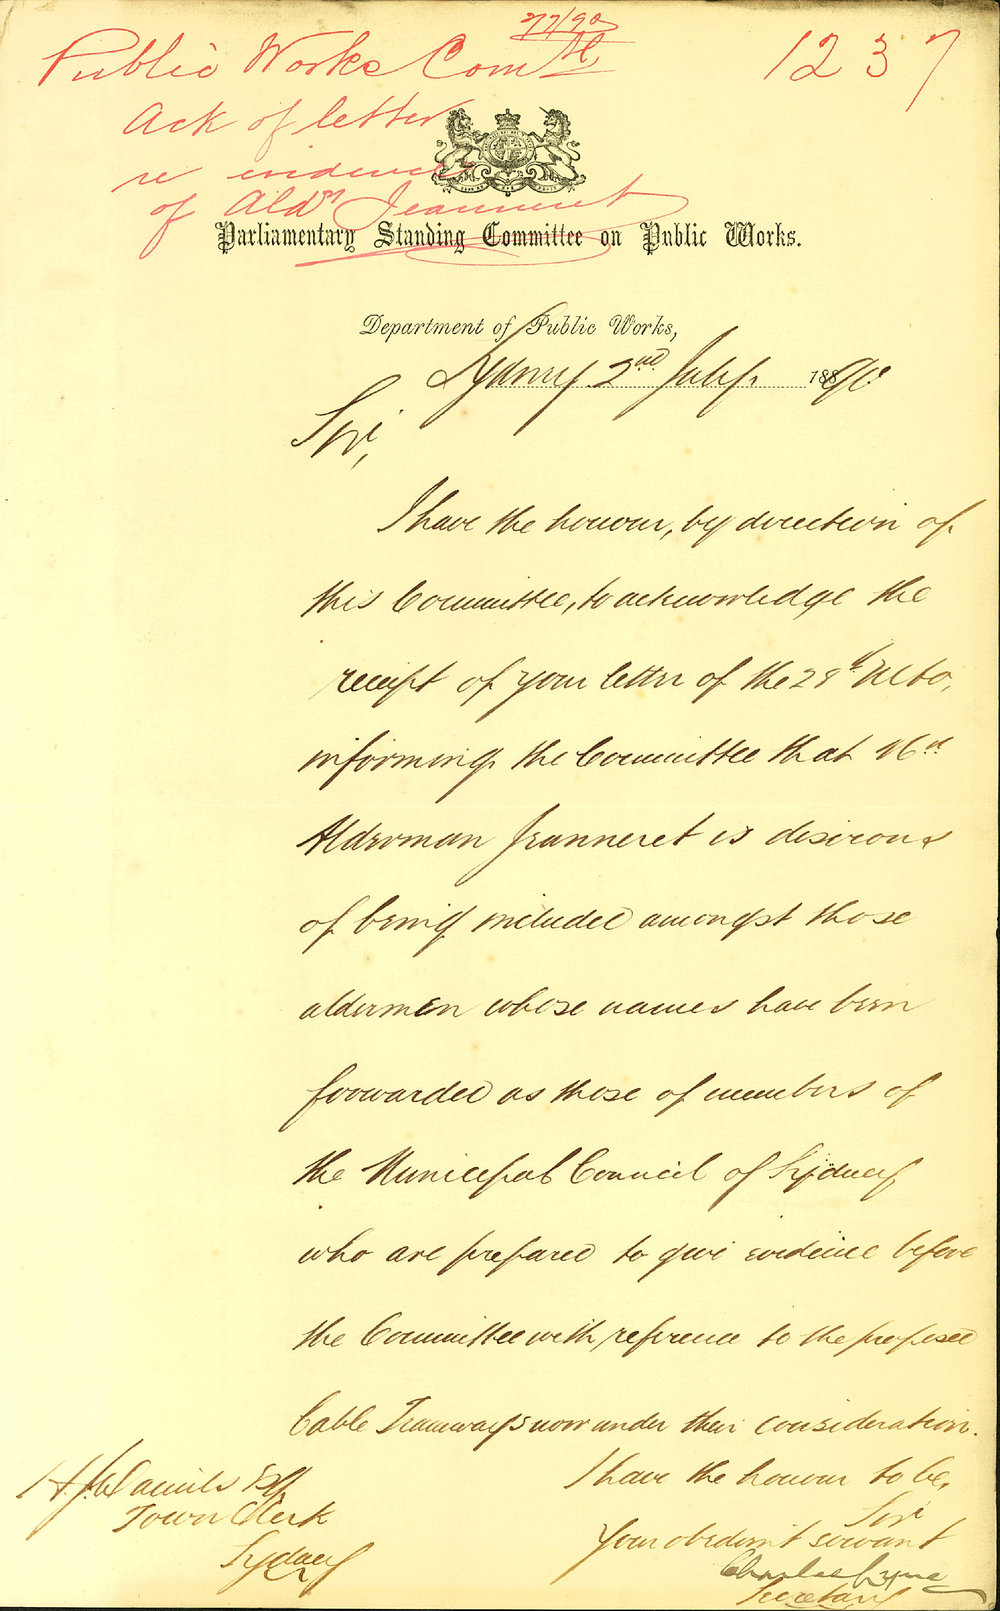 2/7/90
Public Works Comtt
1237
Ack of letter
re evidence
of Aldn Jeanneret
Parliamentary Standing Committee on Public Works.
Department of Public Works,
Sydney 2nd July 1890
Sir,
I have the honour, by direction of
this Committee, to acknowledge the
receipt of your letter of the 28th Ulto,
informing the Committee that
Alderman Jeanneret is desirous
of being included amongst those
aldermen whose names have been
forwarded as those of members of
the Municipal Council of Sydney
who are prepared to give evidence before
the Committee with reference to the proposed
Cable Tramways now under their consideration.
I have the honour to be,
Sir
Your obedient servant
Charles Lyne
Secretary
H J Daniels Esq
Town Clerk
Sydney